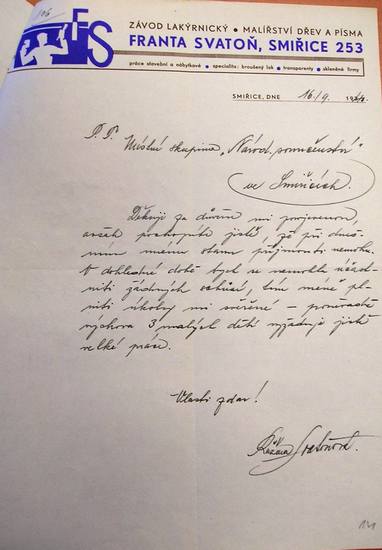 106
FS
ZÁVOD LAKÝRNICKÝ • MALÍŘSTVÍ DŘEV A PÍSMA
FRANTA SVATOŇ, SMIŘICE 253
práce stavební a nábytkové • specialita: broušený lak • transparenty • skleněné firmy
SMIŘICE, DNE 16./9. 19
P. T. Místní skupina „Národ. souručenství"
ve Smiřicích.
Děkuji za důvěru mi projevenou,
avšak pochopíte jistě, že při dneš-
ním mému stavu přijmouti nemohu.
V dohledné době bych se nemohla účast-
niti žádných schůzí, tím méně pl-
niti úkoly mi svěřené – poněvadž
výchova 3 malých dětí vyžaduje jistě
velké práce.
Vlasti zdar!
Růžena Svatoňová.
141